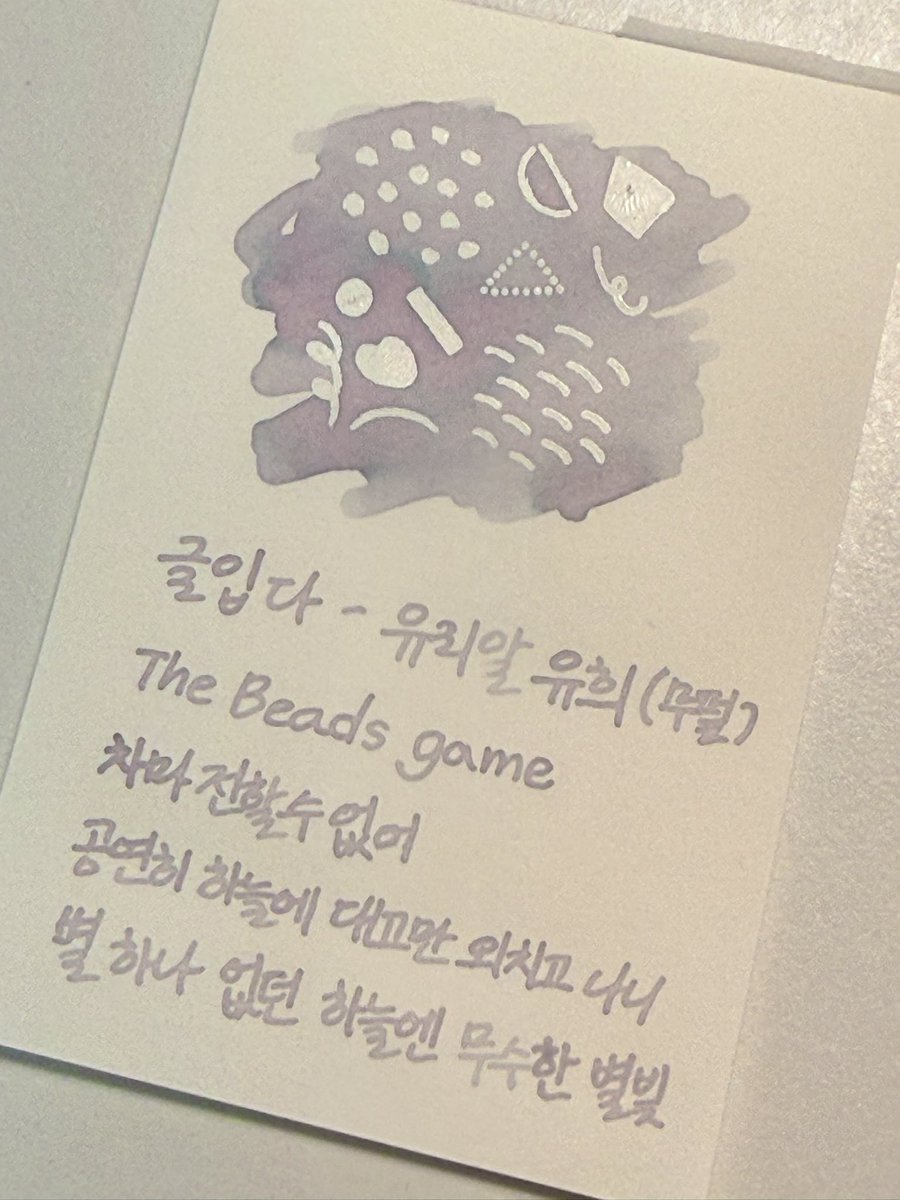 글입다 - 유리알 유희 (무펄)
The Beads game
차마 전할 수 없어
공연히 하늘에 대고만 외치고 나니
별 하나 없던 하늘엔 무수한 별빛